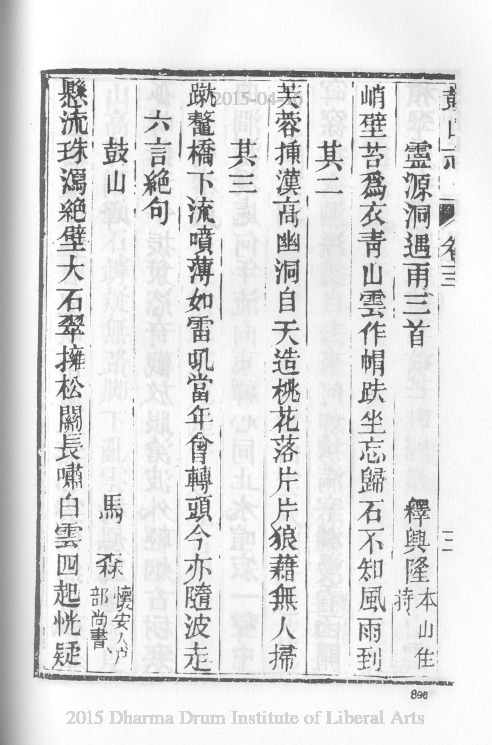 鼓山志 卷三 三
靈源洞遇雨三首 釋興隆 本山住持
峭壁苔爲衣青山雲作帽趺坐忘歸石不知風雨到
其二
芙蓉揷漢高幽洞自天造桃花落片片狼藉無人掃
其三
蹴鼇橋下流噴薄如雷吼當年會轉頭今亦隨波走
六言絶句
鼓山 馬森 懷安人戸部尚書
懸流珠瀉絶壁大石翠擁松關長嘯白雲四起恍疑
2015-04-16
896
2015 Dharma Drum Institute of Liberal Arts